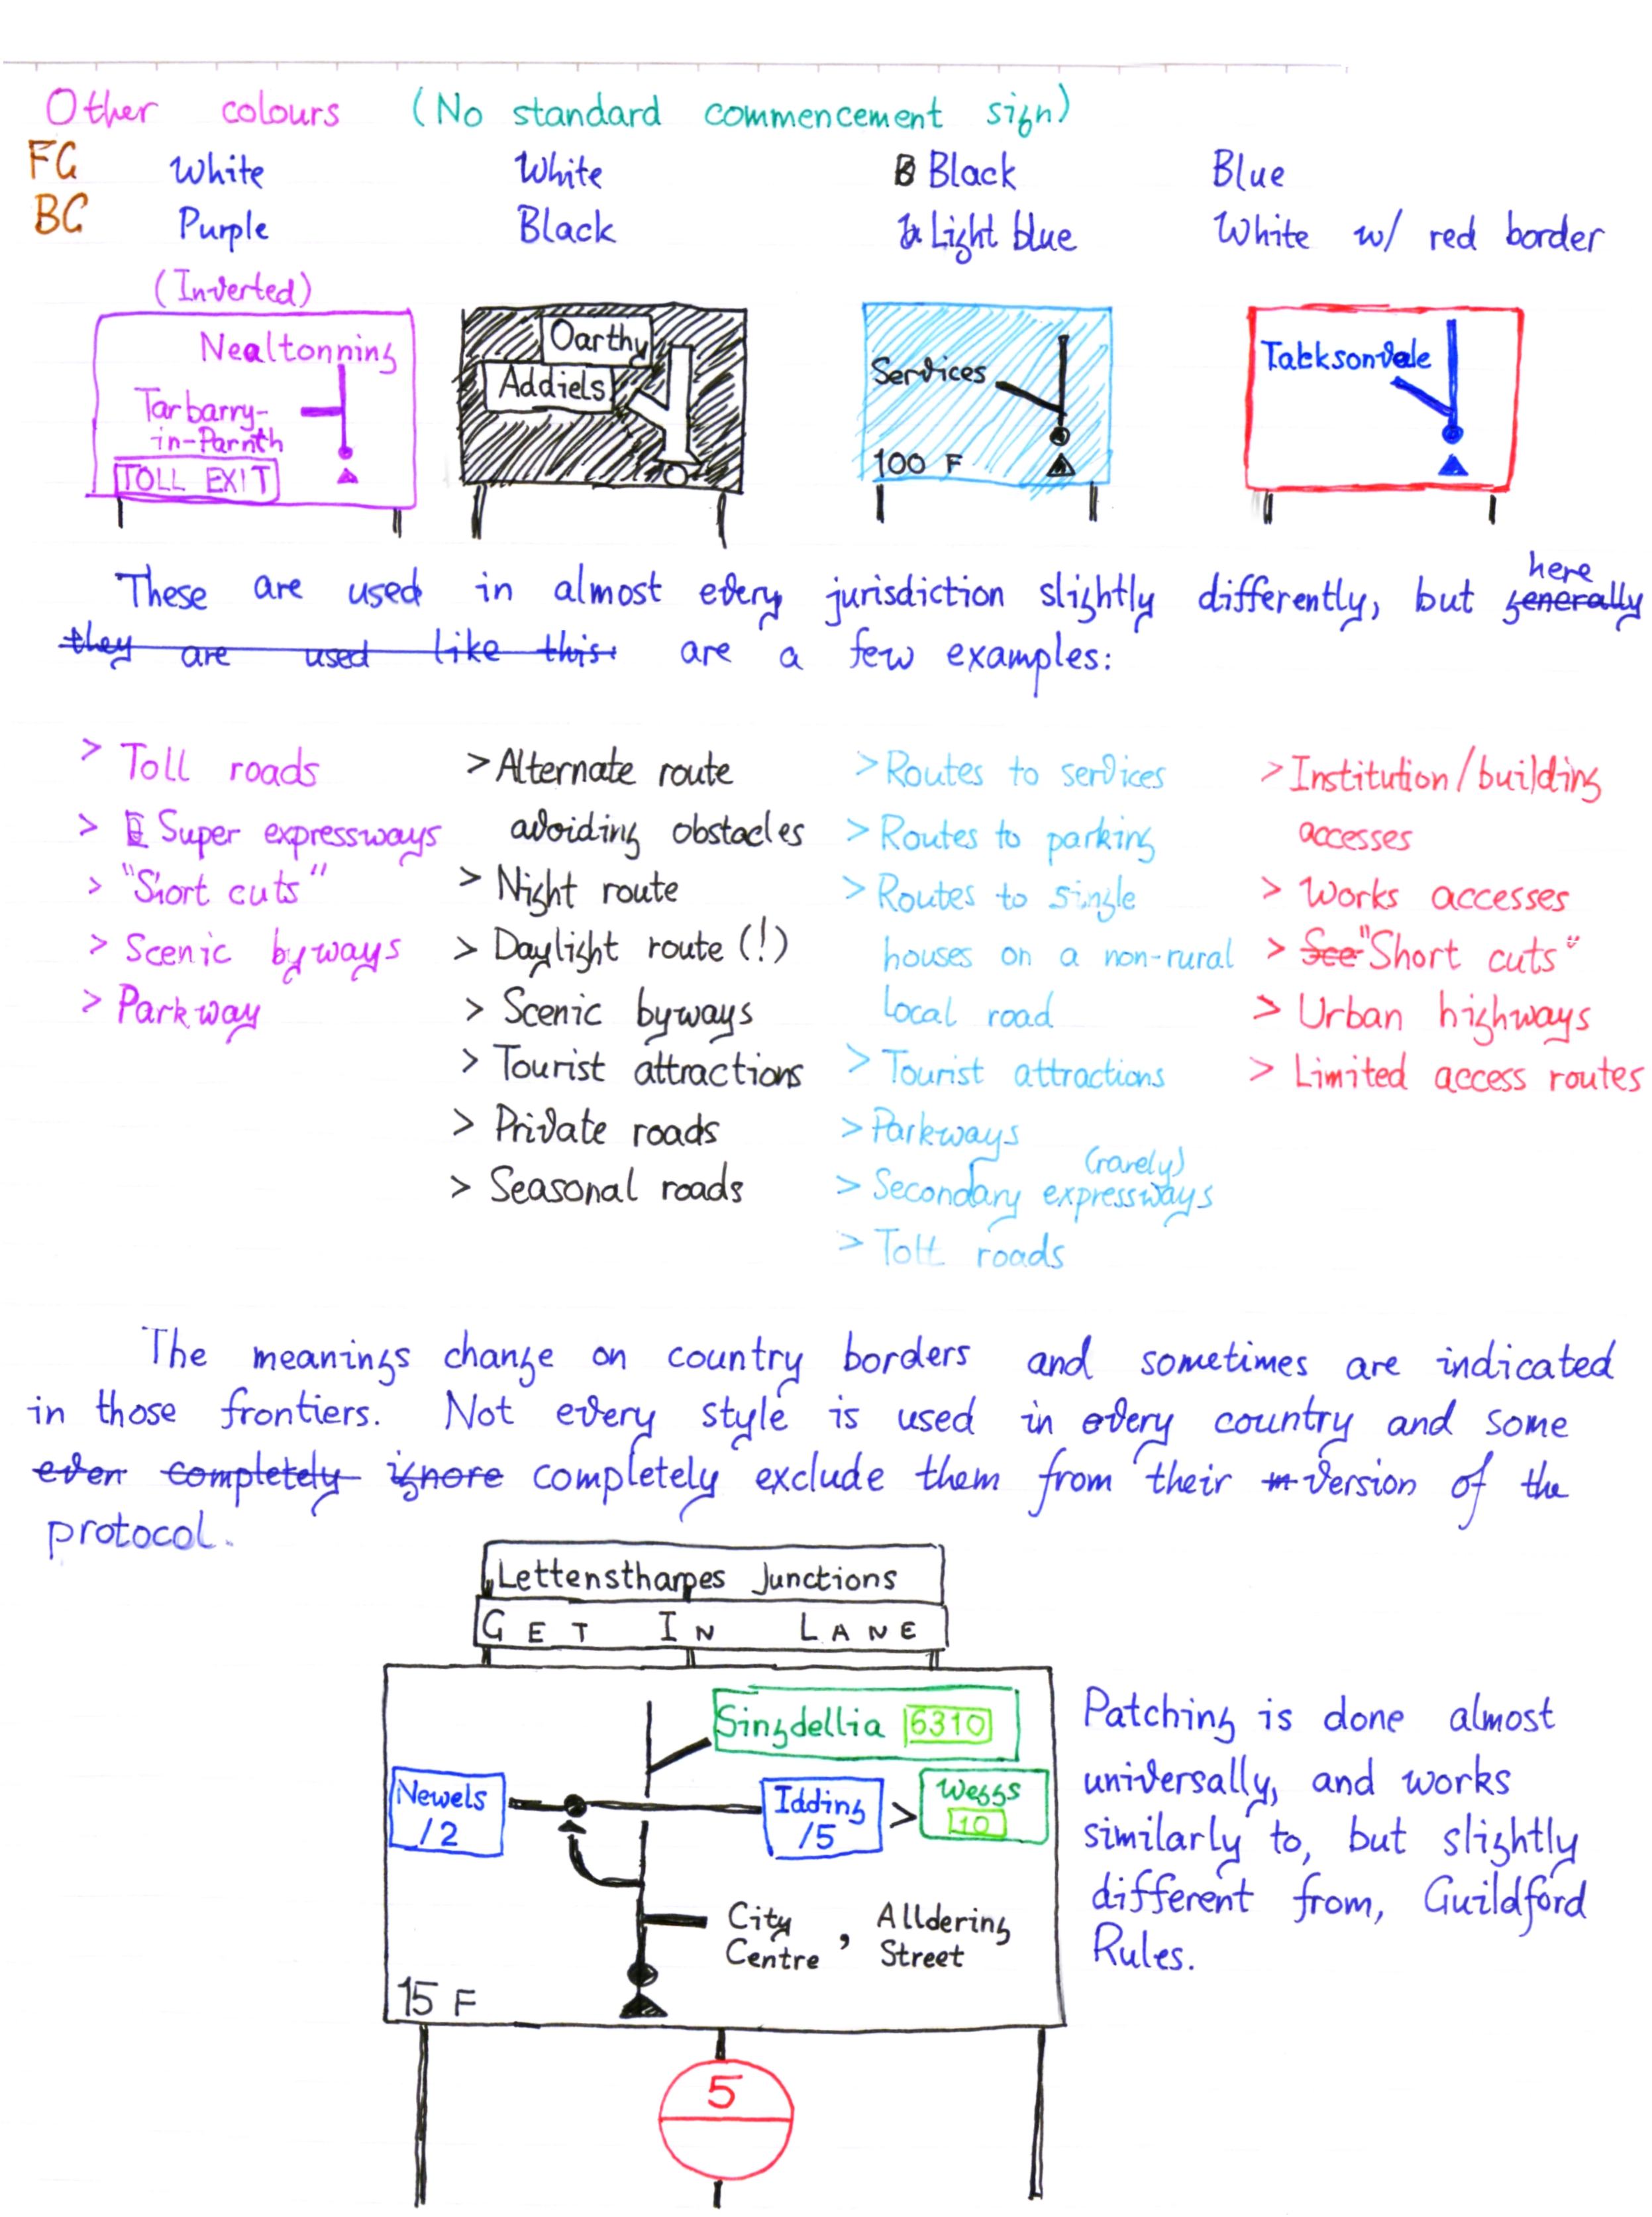 Other colours (No standard commencement sign)
FG White White Black Blue
BG Purple Black Light blue White w/ red border
(Inverted)
Nealtonning
Tarbarry-
in-Parnth
TOLL EXIT
Oarthy
Addiels
Services
100 F
Tacksonvale
These are used in almost every jurisdiction slightly differently, but generally here
they are used like this: are a few examples:
> Toll roads
> Super expressways
> "Short cuts"
> Scenic byways
> Parkway
> Alternate route
avoiding obstacles
> Night route
> Daylight route (!)
> Scenic byways
> Tourist attractions
> Private roads
> Seasonal roads
> Routes to services
> Routes to parking
> Routes to single
houses on a non-rural
local road
> Tourist attractions
> Parkways
(rarely)
> Secondary expressways
> Toll roads
> Institution/building
accesses
> Works accesses
> Sce "Short cuts"
> Urban highways
> Limited access routes
The meanings change on country borders and sometimes are indicated
in those frontiers. Not every style is used in every country and some
even completely ignore completely exclude them from their version of the
protocol.
Lettenstharpes Junctions
GET IN LANE
Singdellia 6310
Newels
/2
Idding
/5
>
Weggs
10
City
Centre
,
Alldering
Street
15 F
5
Patching is done almost
universally, and works
similarly to, but slightly
different from, Guildford
Rules.